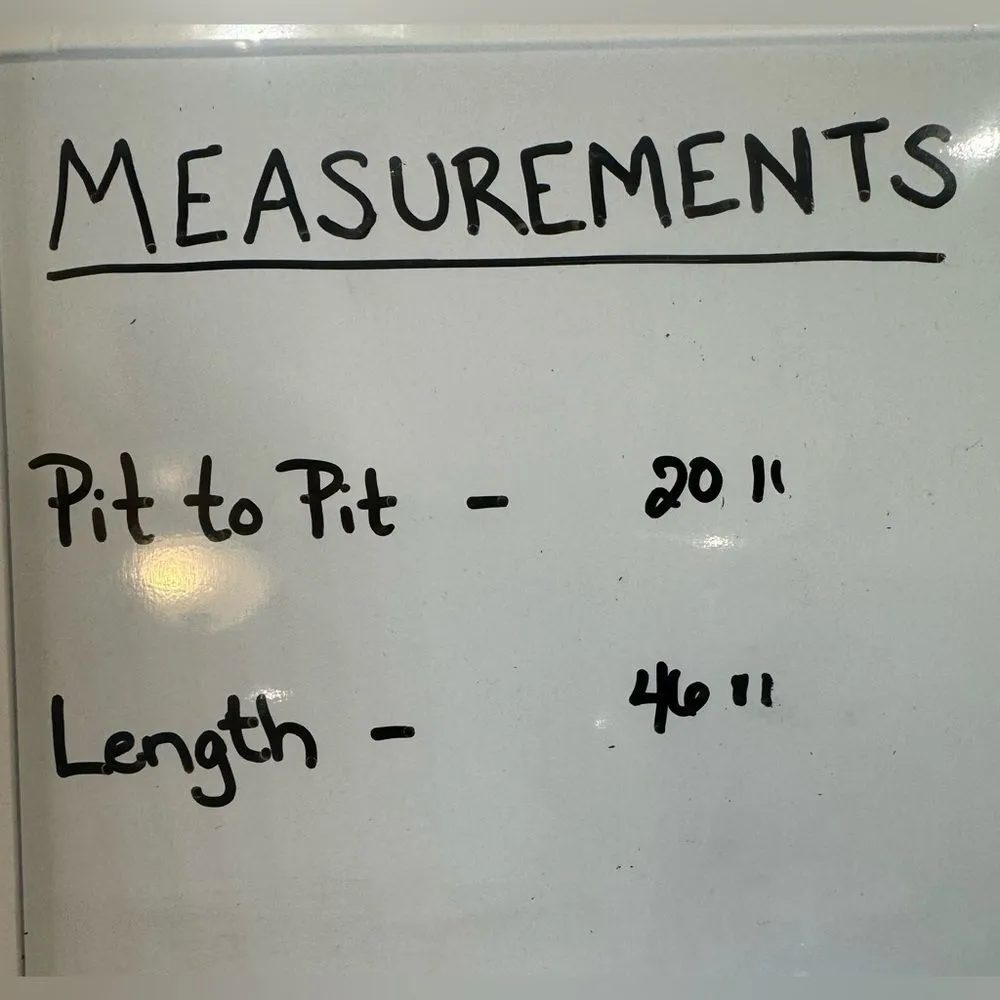 MEASUREMENTS
Pit to Pit - 20 "
Length - 46 "